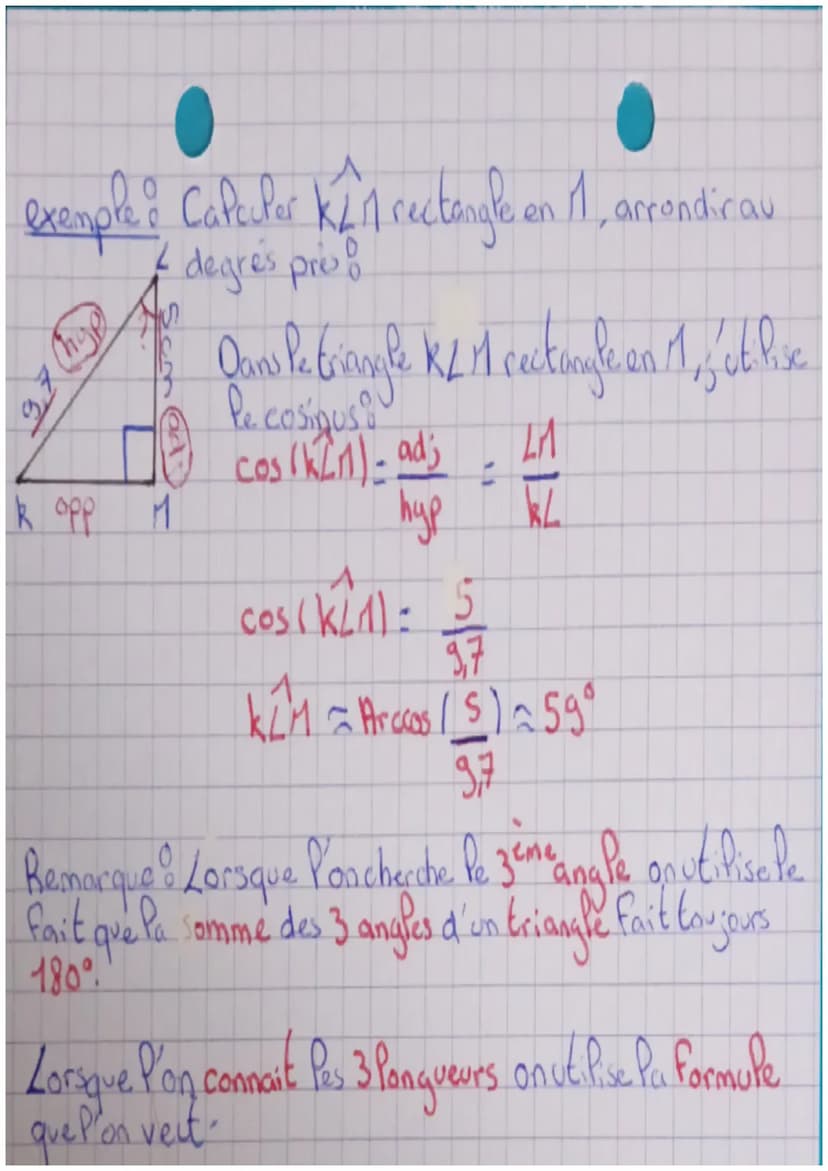 exemple : Calculer KL̂M rectangle en M, arrondir au
degrés près :
L
hyp
9,7
?
5cm
adj
K opp M
Dans le triangle KLM rectangle en M, j'utilise
le cosinus :
cos (KL̂M) = adj/hyp = LM/KL
cos (KL̂M) = 5/9,7
KL̂M ≈ Arccos (5/9,7) ≈ 59°
Remarque : Lorsque l'on cherche le 3ème angle on utilise le
fait que la somme des 3 angles d'un triangle fait toujours
180°.
Lorsque l'on connait les 3 longueurs on utilise la formule
que l'on veut.